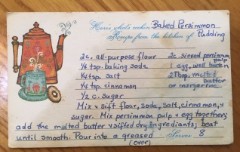 Here's what's cookin' Baked Persimmon
Recipe from the kitchen of Pudding
2 c. all-purpose flour 2 c. sieved persimmon pulp
½ tsp baking soda 1 egg, well beaten
¼ tsp salt 2 Tbsp. melted butter
½ tsp cinnamon or margarine
1½ c. sugar
Mix & Sift flour, soda, salt, cinnamon, &
sugar. Mix persimmon pulp & egg together,
add the melted butter & sifted dry ingredients; beat
until smooth. Pour into a greased Serves 8
(over)